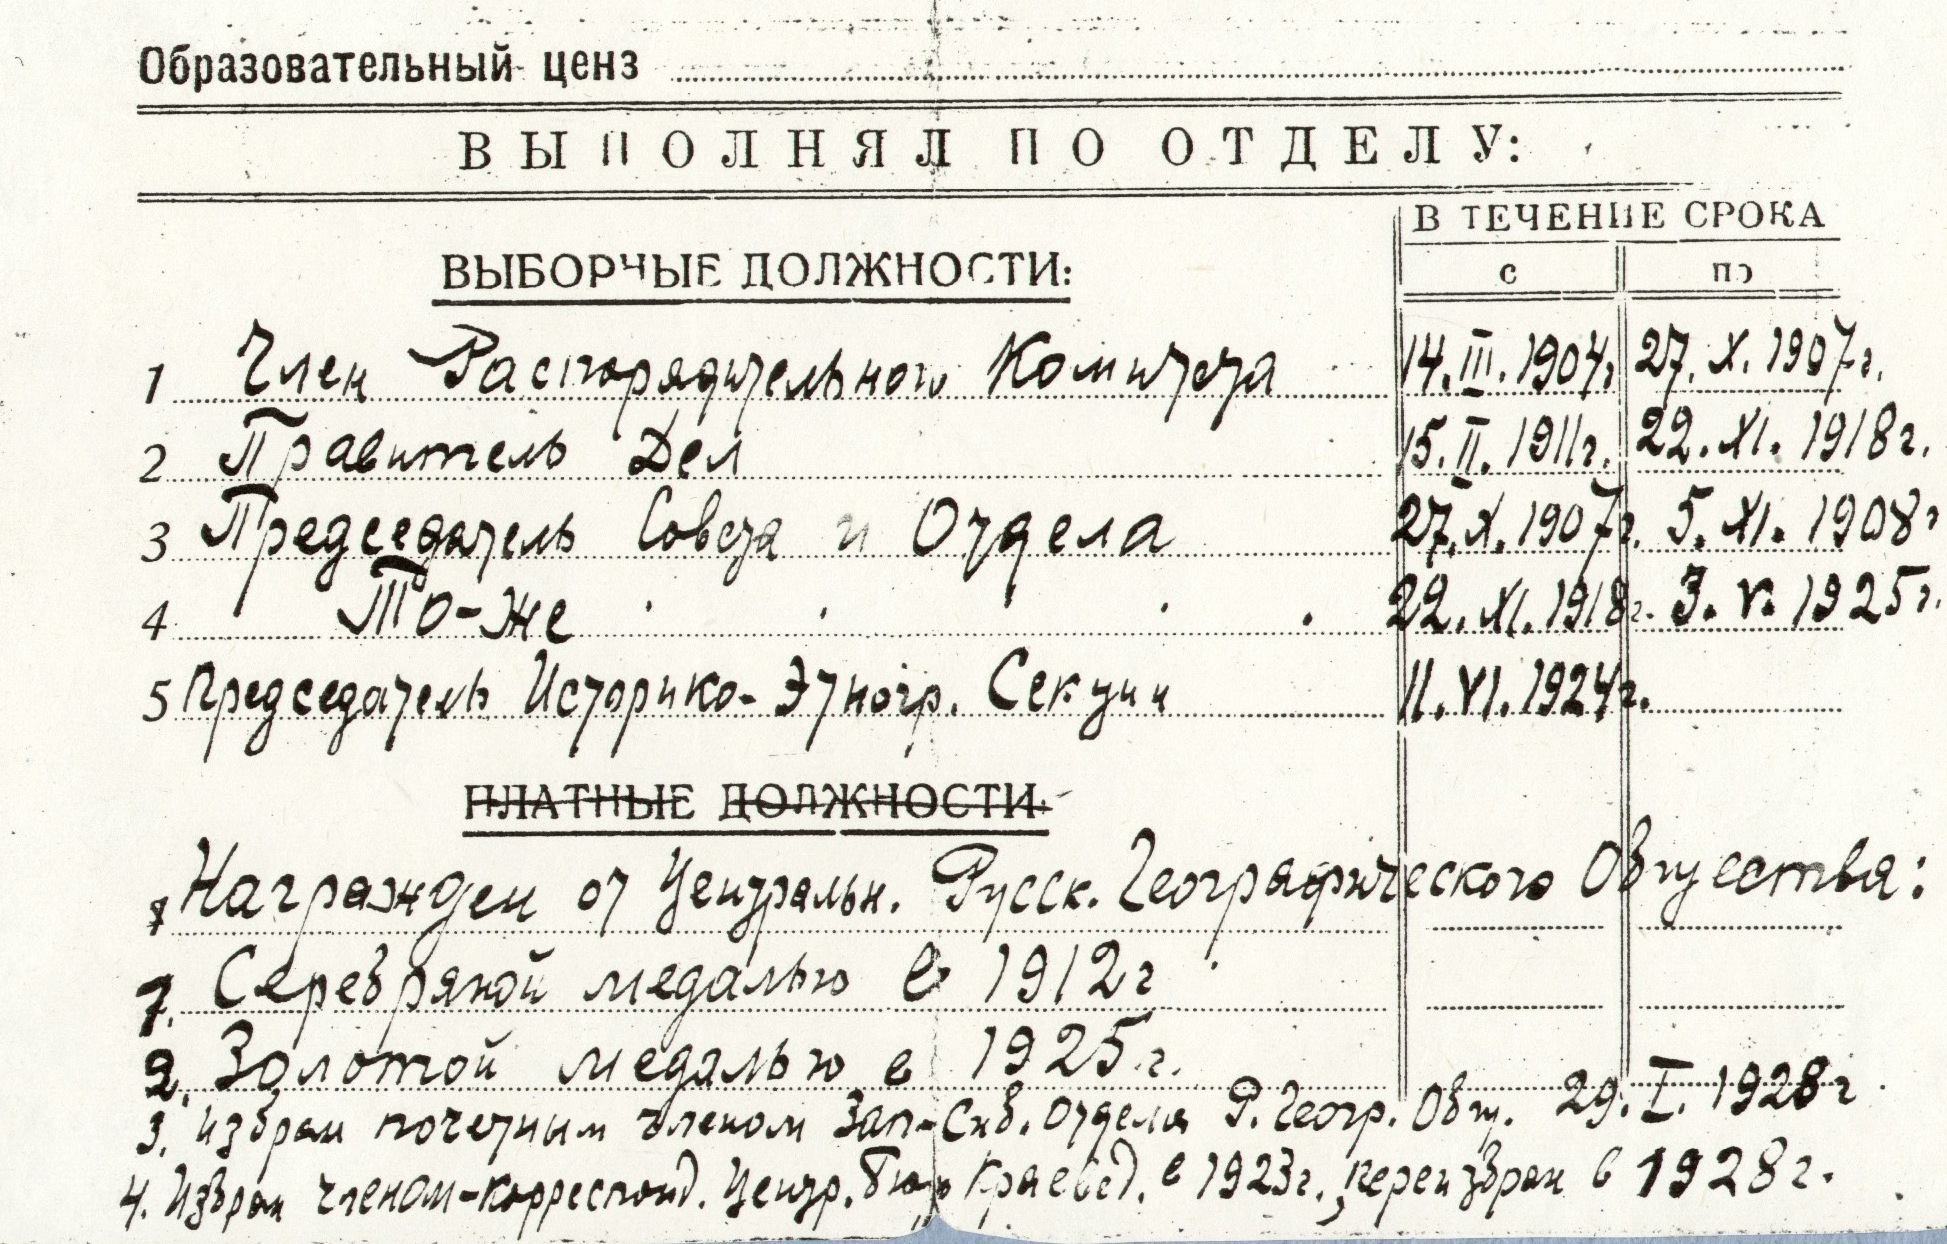 Образовательный ценз
ВЫПОЛНЯЛ ПО ОТДЕЛУ:
В ТЕЧЕНИЕ СРОКА
ВЫБОРНЫЕ ДОЛЖНОСТИ:
с по
1 Член Распорядительного Комитета 14.III.1904г. 27.X.1907г.
2 Правитель Дел 15.II.1911г. 22.XI.1918г.
3 Председатель Совета и Отдела 27.X.1907г. 5.XI.1908г
4 То-же 22.XI.1918г. 3.V.1925г.
5 Председатель Историко-Этногр. Секции 11.VI.1924г.
ПЛАТНЫЕ ДОЛЖНОСТИ:
Награжден от Центральн. Русск. Географического Общества:
1. Серебряной медалью в 1912г
2. Золотой медалью в 1925г.
3. Избран почетным членом Зап-Сиб. Отдела Р. Геогр. Общ. 29.I.1928г
4. Избран членом-корреспонд. Центр. Бюро Краевед. в 1923г., переизбран в 1928г.